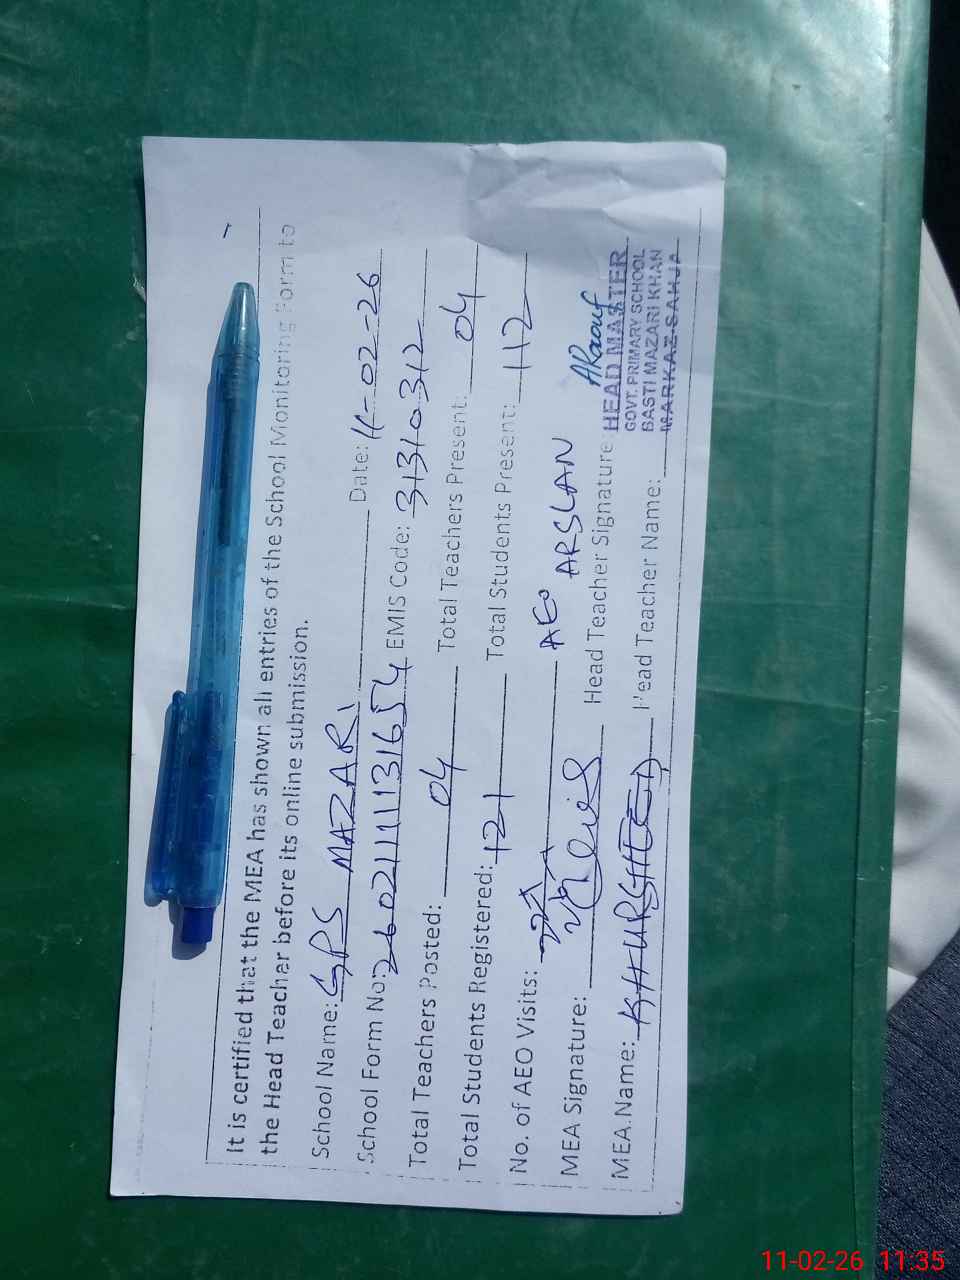 It is certified that the MEA has shown all entries of the School Monitoring Form to
the Head Teacher before its online submission.
School Name: GPS MAZARI Date: 11-02-26
School Form No: 2602111131654 EMIS Code: 31310312
Total Teachers Posted: 04 Total Teachers Present: 04
Total Students Registered: 121 Total Students Present: 112
No. of AEO Visits: AEO ARSLAN
MEA Signature: Head Teacher Signature: ARaouf
HEAD MASTER
GOVT. PRIMARY SCHOOL
BASTI MAZARI KHAN
MARKAZ SAHJA
MEA Name: KHURSHEED Head Teacher Name:
11-02-26 11:35